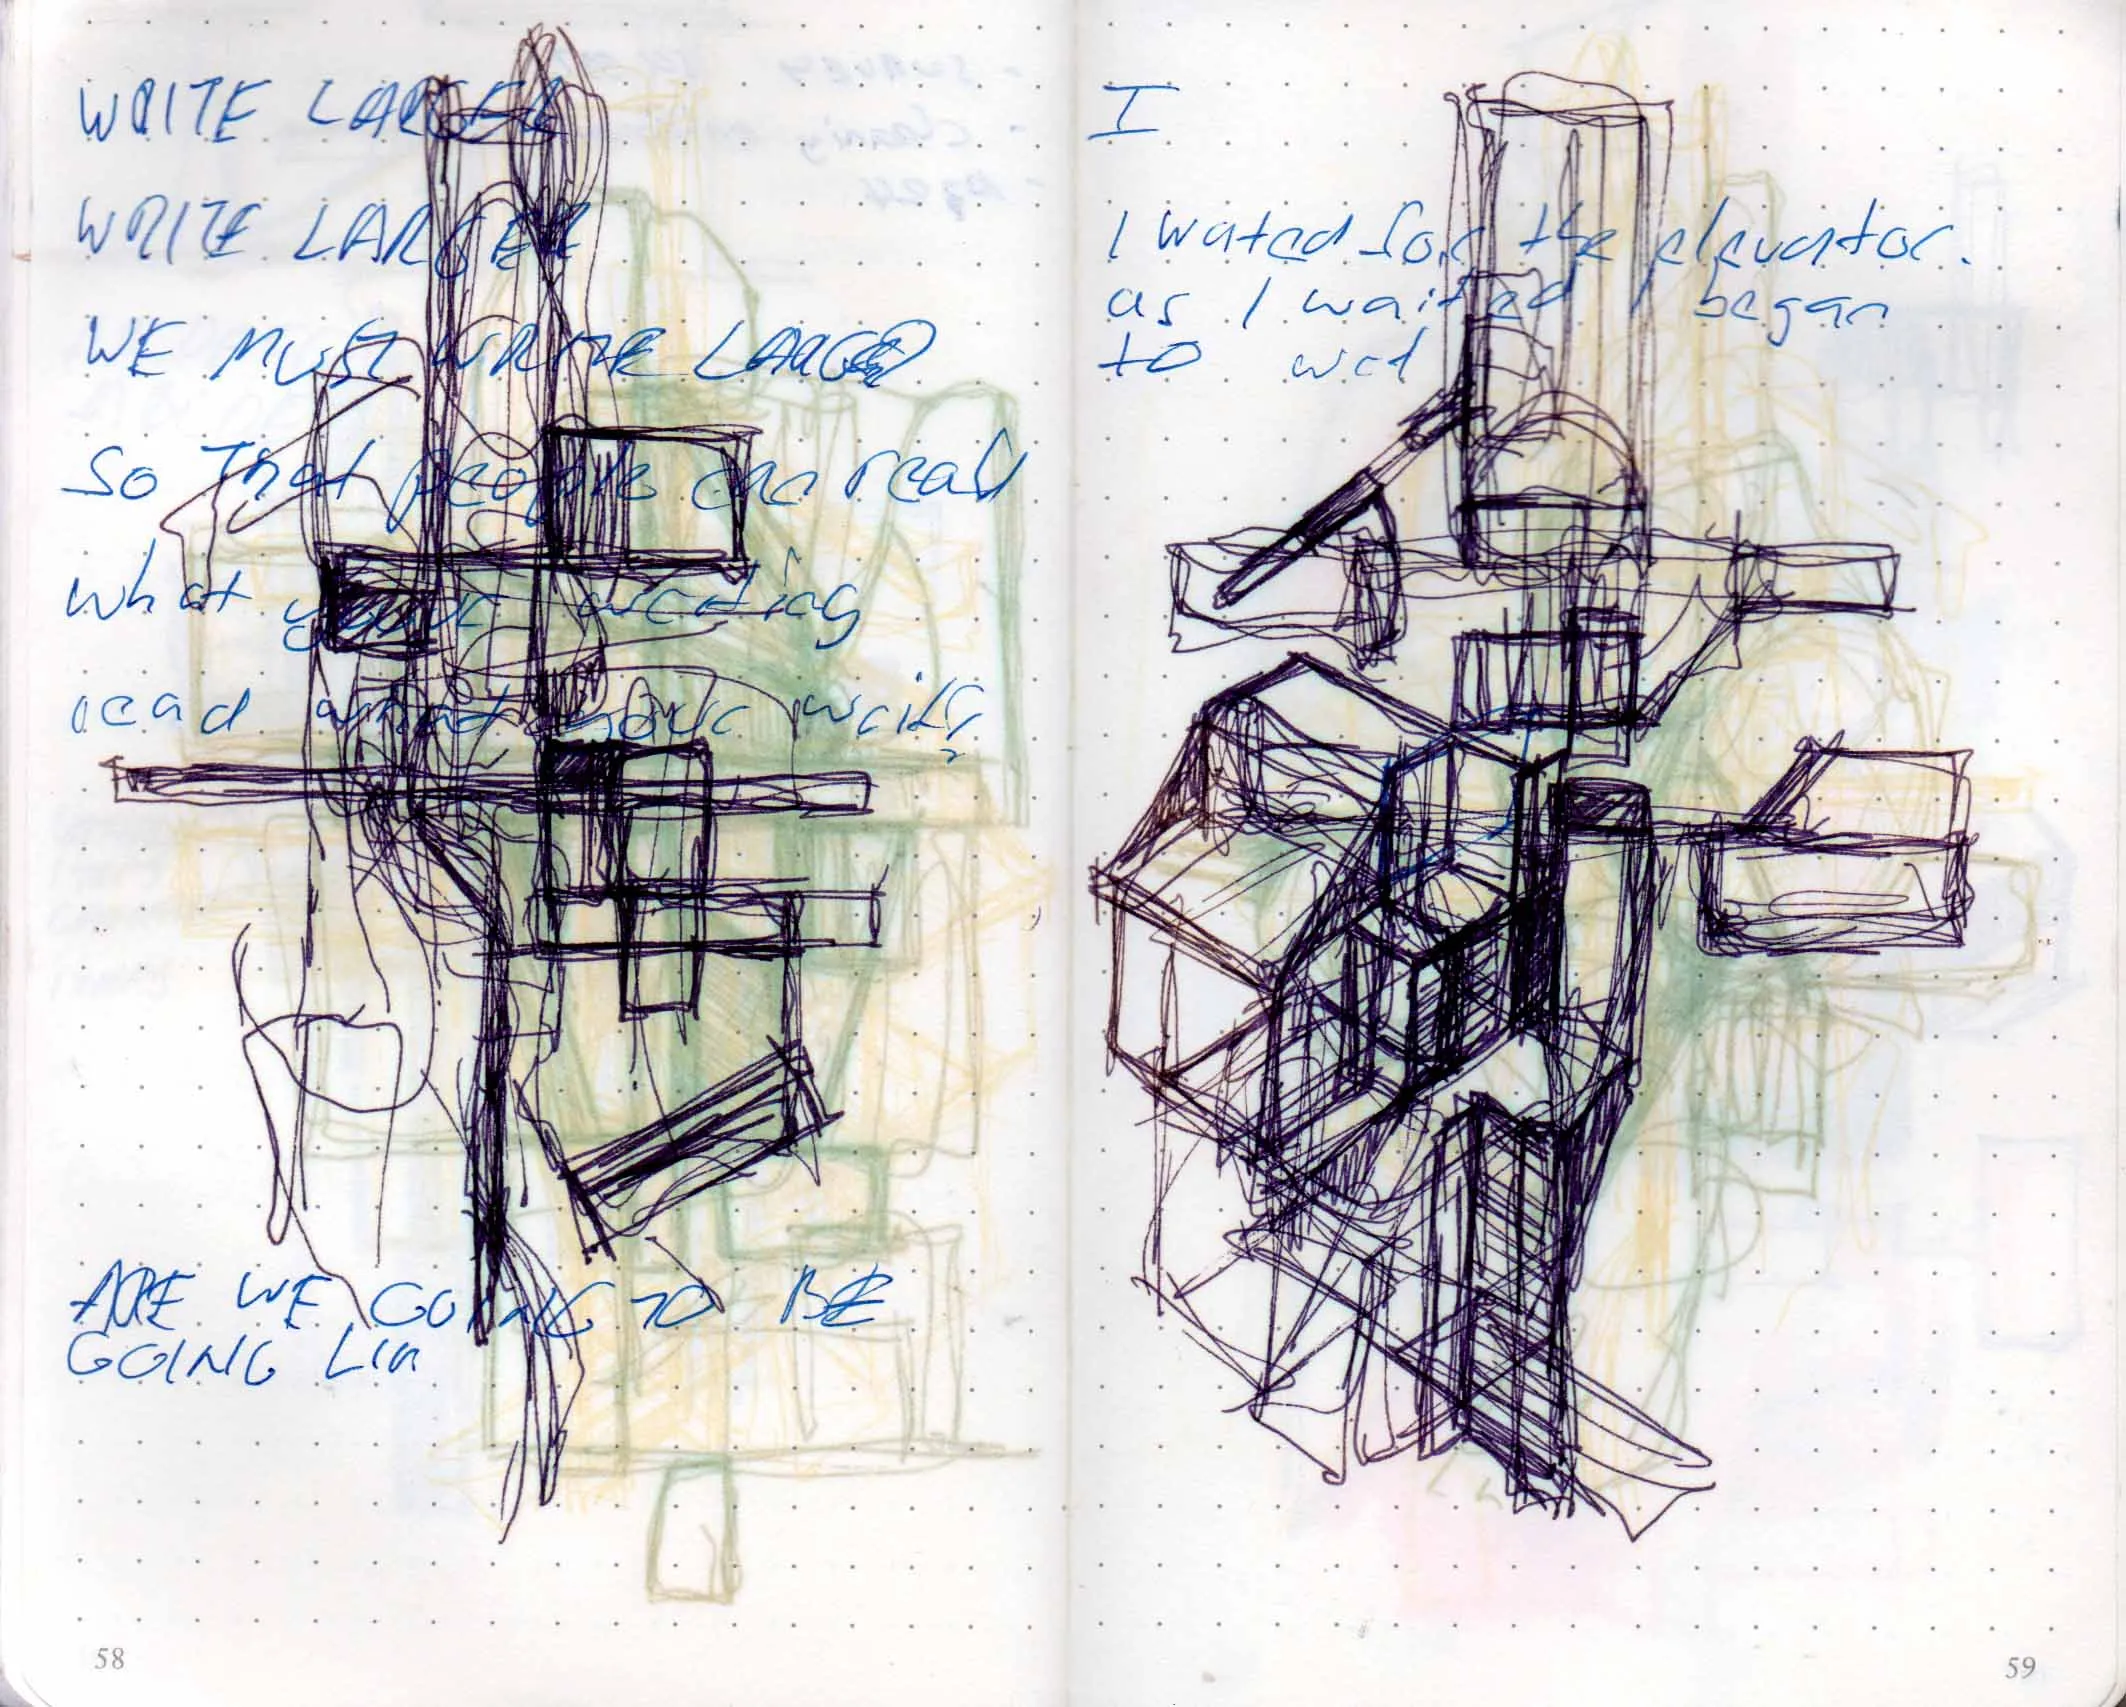 WRITE LARGER
WRITE LARGER
WE MUST WRITE LARGER
So That people can read
what your writing
read what your writing
ARE WE GOING TO BE
GOING
58
I
I wated for the elevator.
as I waited I began
to
59